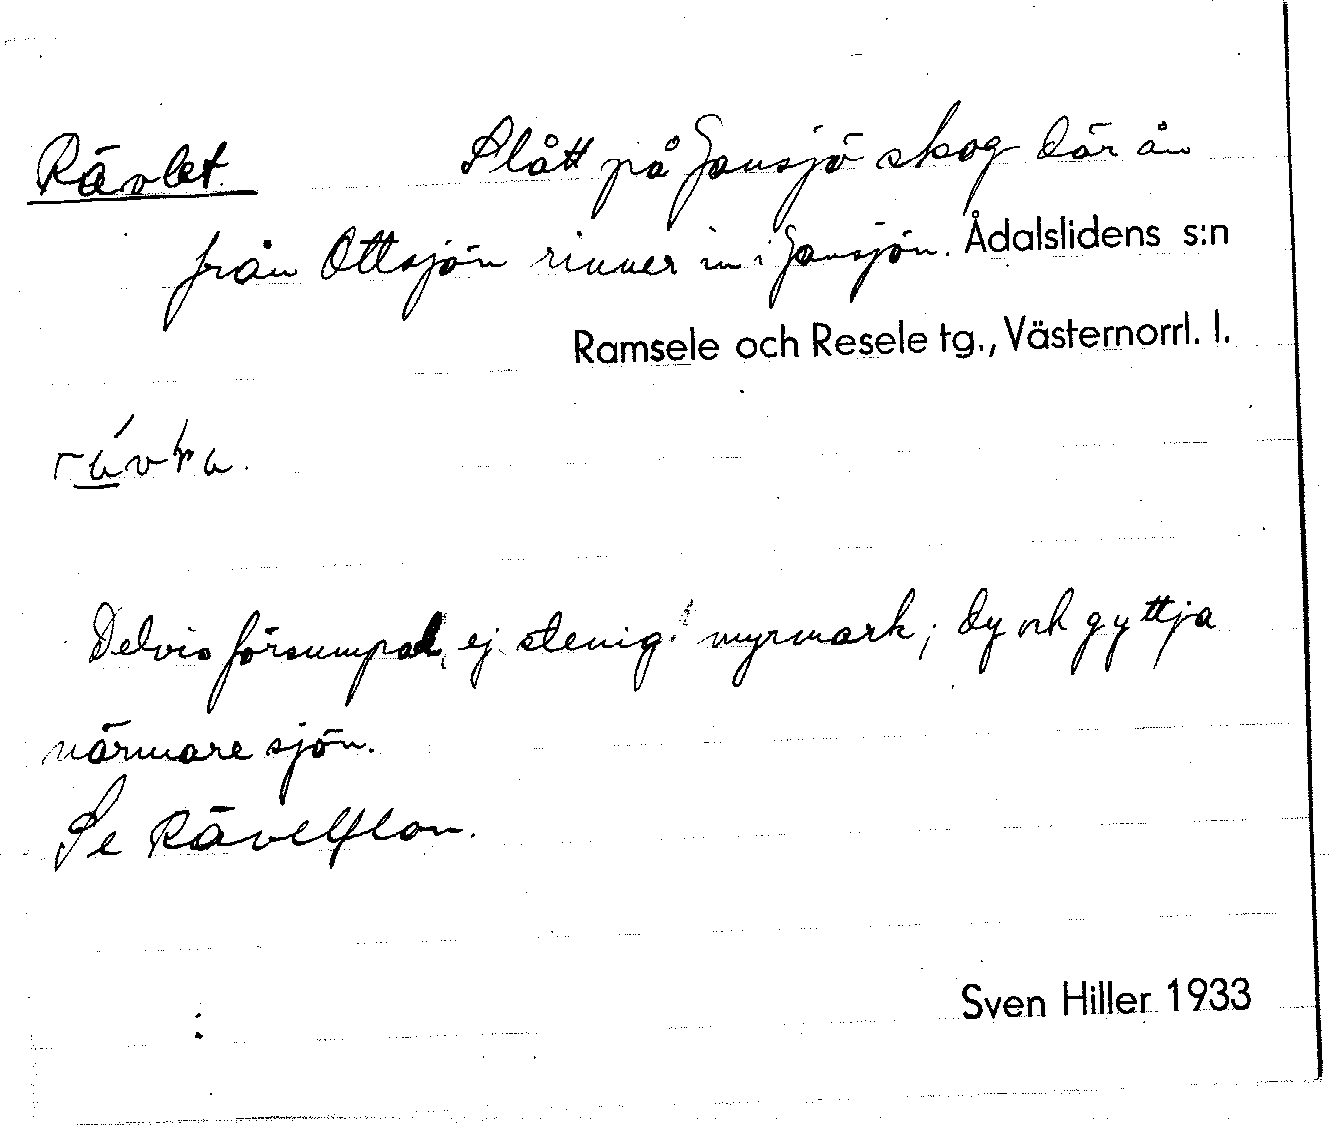 Rävlet. Slått på Jansjö skog där ån
från Ottsjön rinner in i Jansjön. Ådalslidens s:n
Ramsele och Resele tg., Västernorrl. l.
Delvis försumpad, ej stenig myrmark; dy och gyttja
närmare sjön.
Se Rävelflon.
Sven Hiller 1933